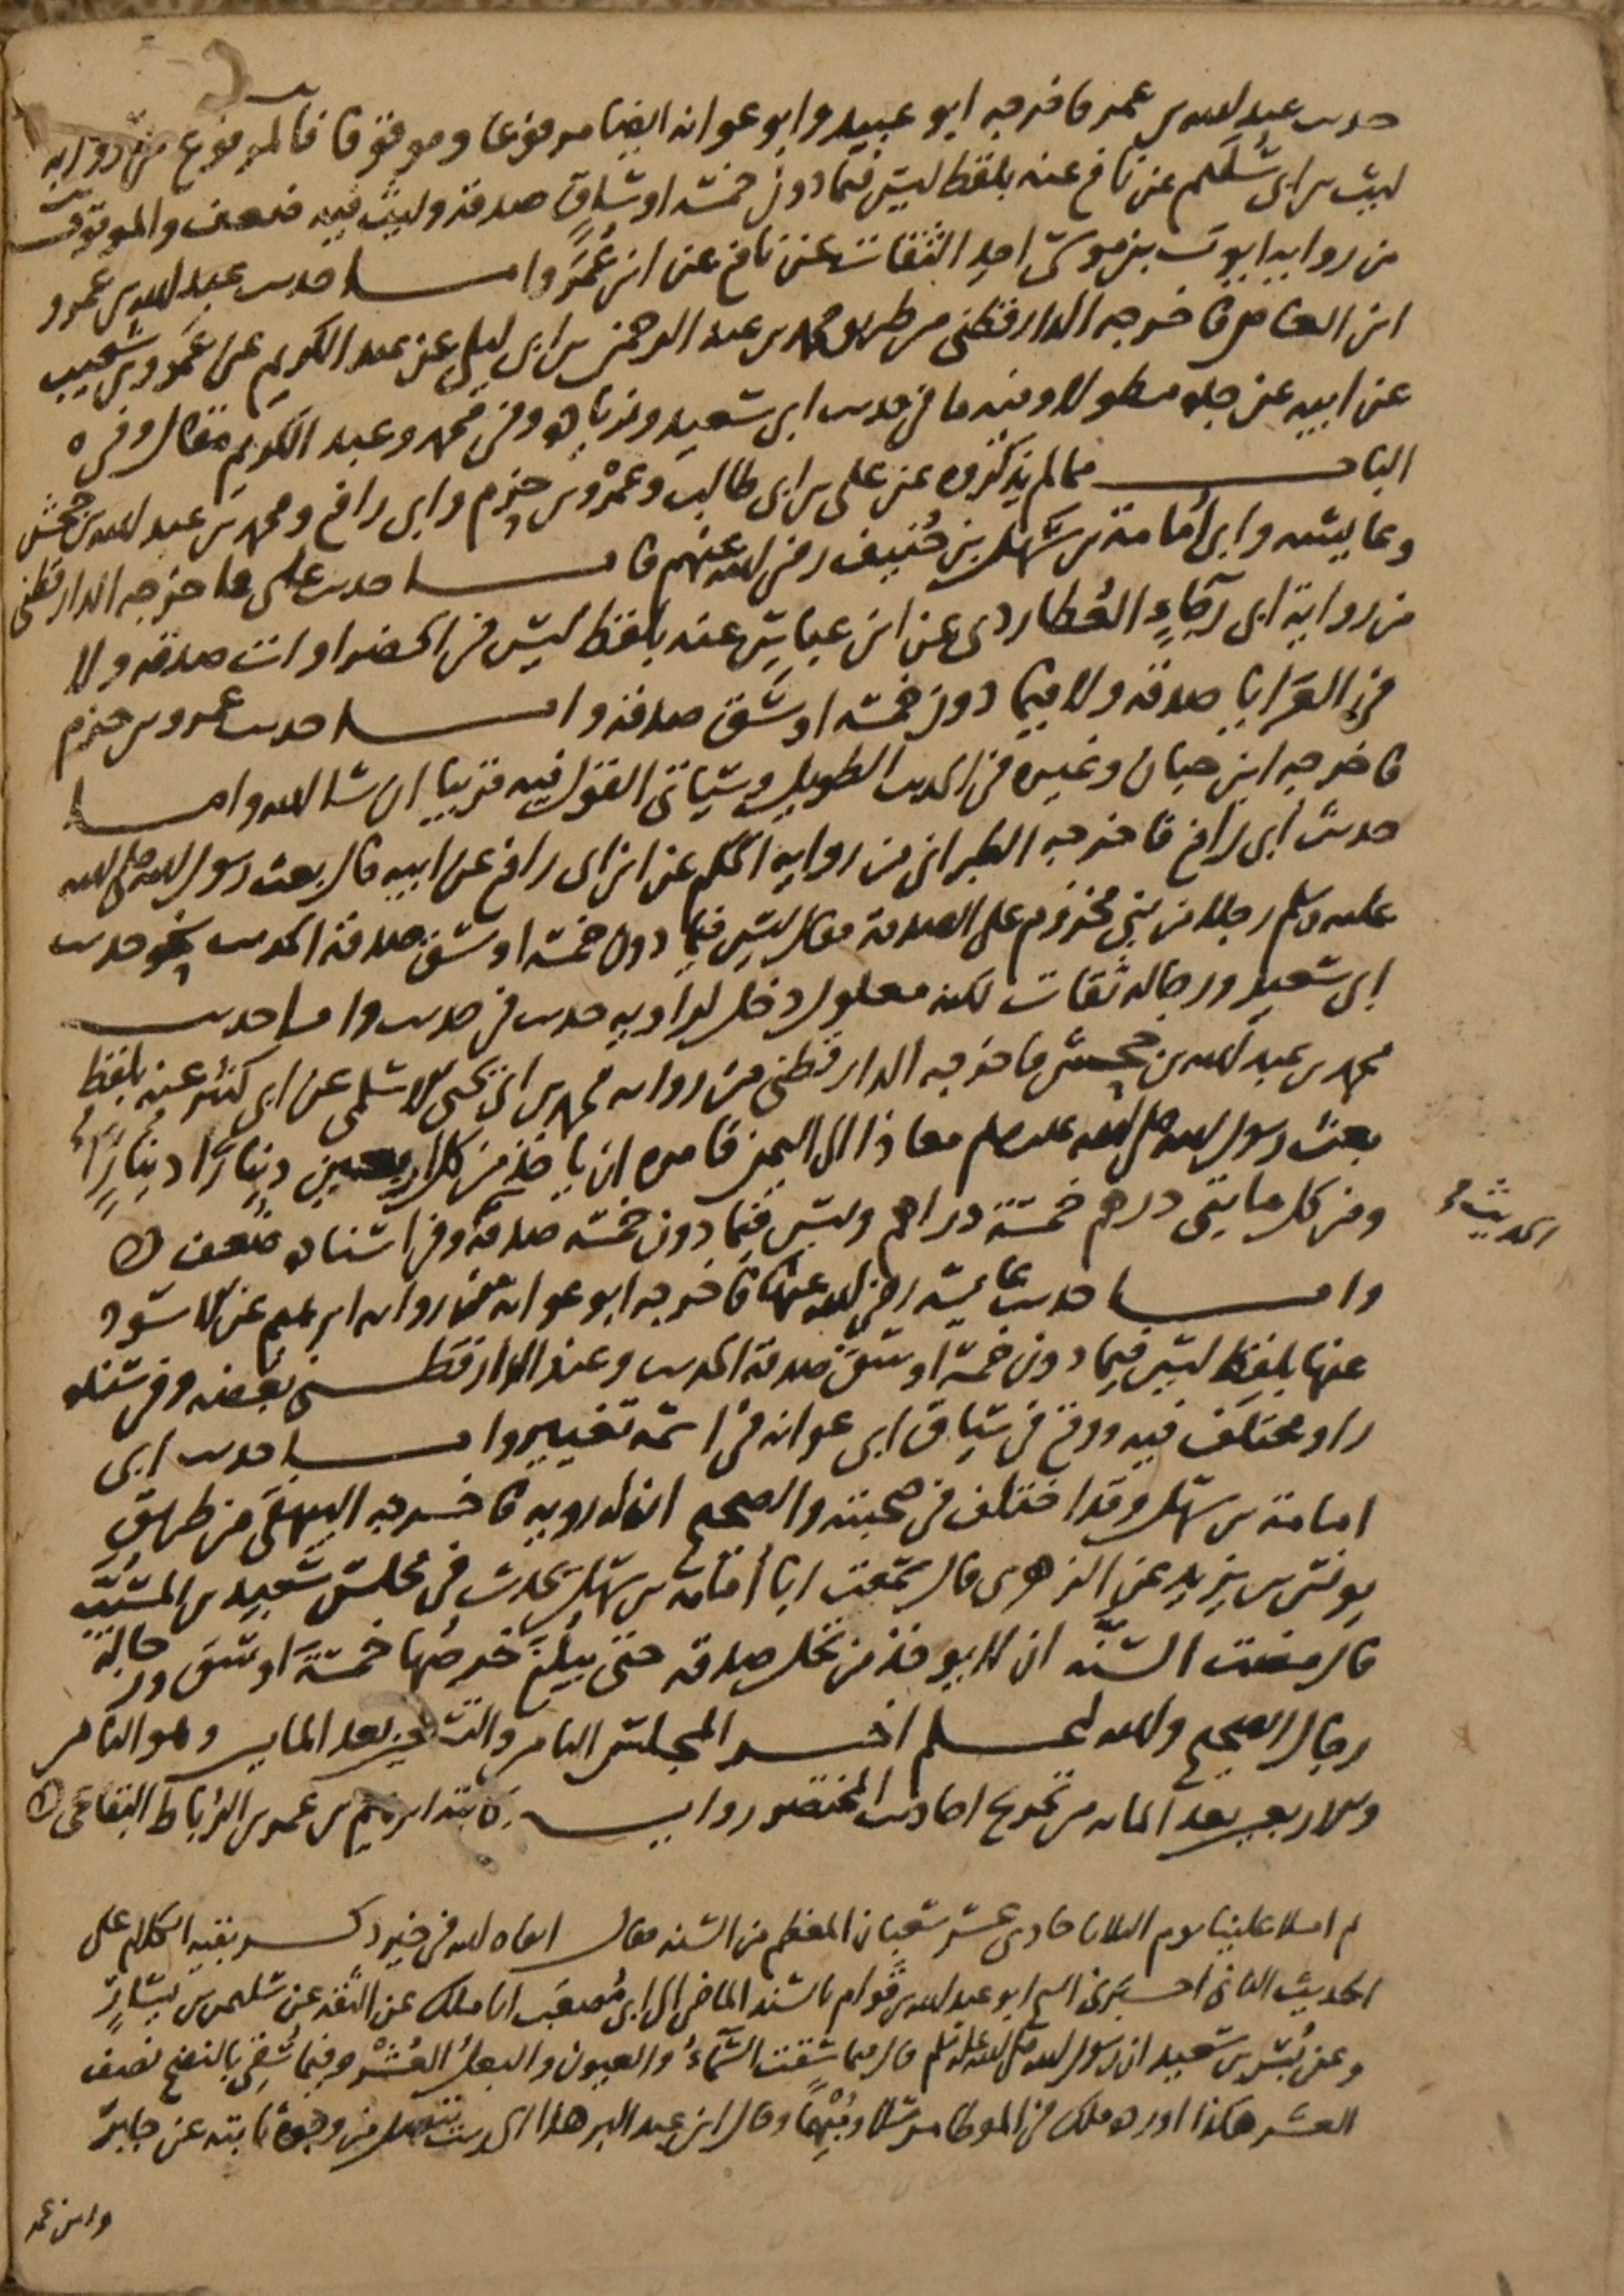 حديث عبد الله بن عمر فاخرجه ابو عبيد وابو عوانه ايضا مرفوعا وموقوفا فالمرفوع من روايه
ليث بن ابي سليم عن نافع عنه بلفظ ليس فيما دون خمسة اوساق صدقة وليث فيه ضعف والموقوف
من روايه ايوب بن موسى احد الثقات عن نافع عن ابن عمر واما حديث عبد الله بن عمرو
ابن العاص فاخرجه الدارقطني من طريق محمد بن عبد الرحمن بن ابي ليلى عن عبد الكريم عن عمرو بن شعيب
عن ابيه عن جده مطولا وفيه ما في حديث ابي سعيد وزياده وفي محمد وعبد الكريم مقال وفي
الباب مما لم يذكروه عن علي بن ابي طالب وعمرو بن حزم وابي رافع ومحمد بن عبد الله بن جحش
وعايشه وابي أمامة بن سهل بن حنيف رضي الله عنهم فاما حديث علي فاخرجه الدارقطني
من رواية ابي رجاء العطاردي عن ابن عباس عنه بلفظ ليس في الخضراوات صدقه ولا
في العرايا صدقه ولا فيما دون خمسة اوسق صدقه واما حديث عمرو بن حزم
فاخرجه ابن حبان وغيره في الحديث الطويل وسياتي القول فيه قريبا ان شا الله واما
حديث ابي رافع فاخرجه الطبراني من روايه الحكم عن ابن ابي رافع عن ابيه قال بعث رسول الله صلى الله
عليه وسلم رجلا من بني مخزوم على الصدقة فقال ليس فيما دون خمسة اوسق صدقة الحديث نحو حديث
ابي سعيد ورجاله ثقات لكنه معلول دخل لراويه حديث في حديث واما حديث
محمد بن عبد الله بن جحش فاخرجه الدارقطني من روايه محمد بن ابي يحيى الاسلمي عن ابي كثير عنه بلفظ
بعث رسول الله صلى الله عليه وسلم معاذا الى اليمن فامره ان ياخذ من كل اربعين دينارا دينارا
ومن كل مايتي درهم خمسة دراهم وليس فيما دون خمسه صدقة وفي اسناده ضعف
الحديث
واما حديث عايشه رضي الله عنها فاخرجه ابو عوانه من روايه ابرهيم عن الاسود
عنها بلفظ ليس فيما دون خمسة اوسق صدقة الحديث وعند الدارقطني بعضه وفي سنده
راو مختلف فيه ووقع في سياق ابي عوانه في اسمه تغيير واما حديث ابي
امامة بن سهل وقد اختلف في صحبته والصحيح ان له رويه فاخرجه البيهقي من طريق
يونس بن يزيد عن الزهري قال سمعت ابا أمامة بن سهل يحدث في مجلس سعيد بن المسيب
قال مضت السنه ان لا يوخذ من نخل صدقه حتى يبلغ خرصها خمسة اوسق ورجاله
رجال الصحيح والله اعلم اخر المجلس الثامن والتسعين بعد المايه وهو الثامن
والاربعين بعد المايه من تخريج احاديث المختصر روايه كاتبه ابرهيم بن عمر بن الرباط البقاعي
ثم املا علينا يوم الثلاثا حادي عشر شعبان المعظم من السنه فقال ابقاه الله في خير ذكر بقيه الكلام على
الحديث الثاني اخبرني ابو عبد الله بن قوام بالسند الماضي الى ابي مصعب انا ملك عن الثقه عن سليمن بن يسار
وعن بسر بن سعيد ان رسول الله صلى الله عليه وسلم قال فيما سقت السماء والعيون والبعل العشر وفيما سقي بالنضح نصف
العشر هكذا اورده ملك في الموطا مرسلا ومبهما وقال ابن عبد البر هذا الحديث يتصل من وجوه ثابته عن جابر
وابن عمر